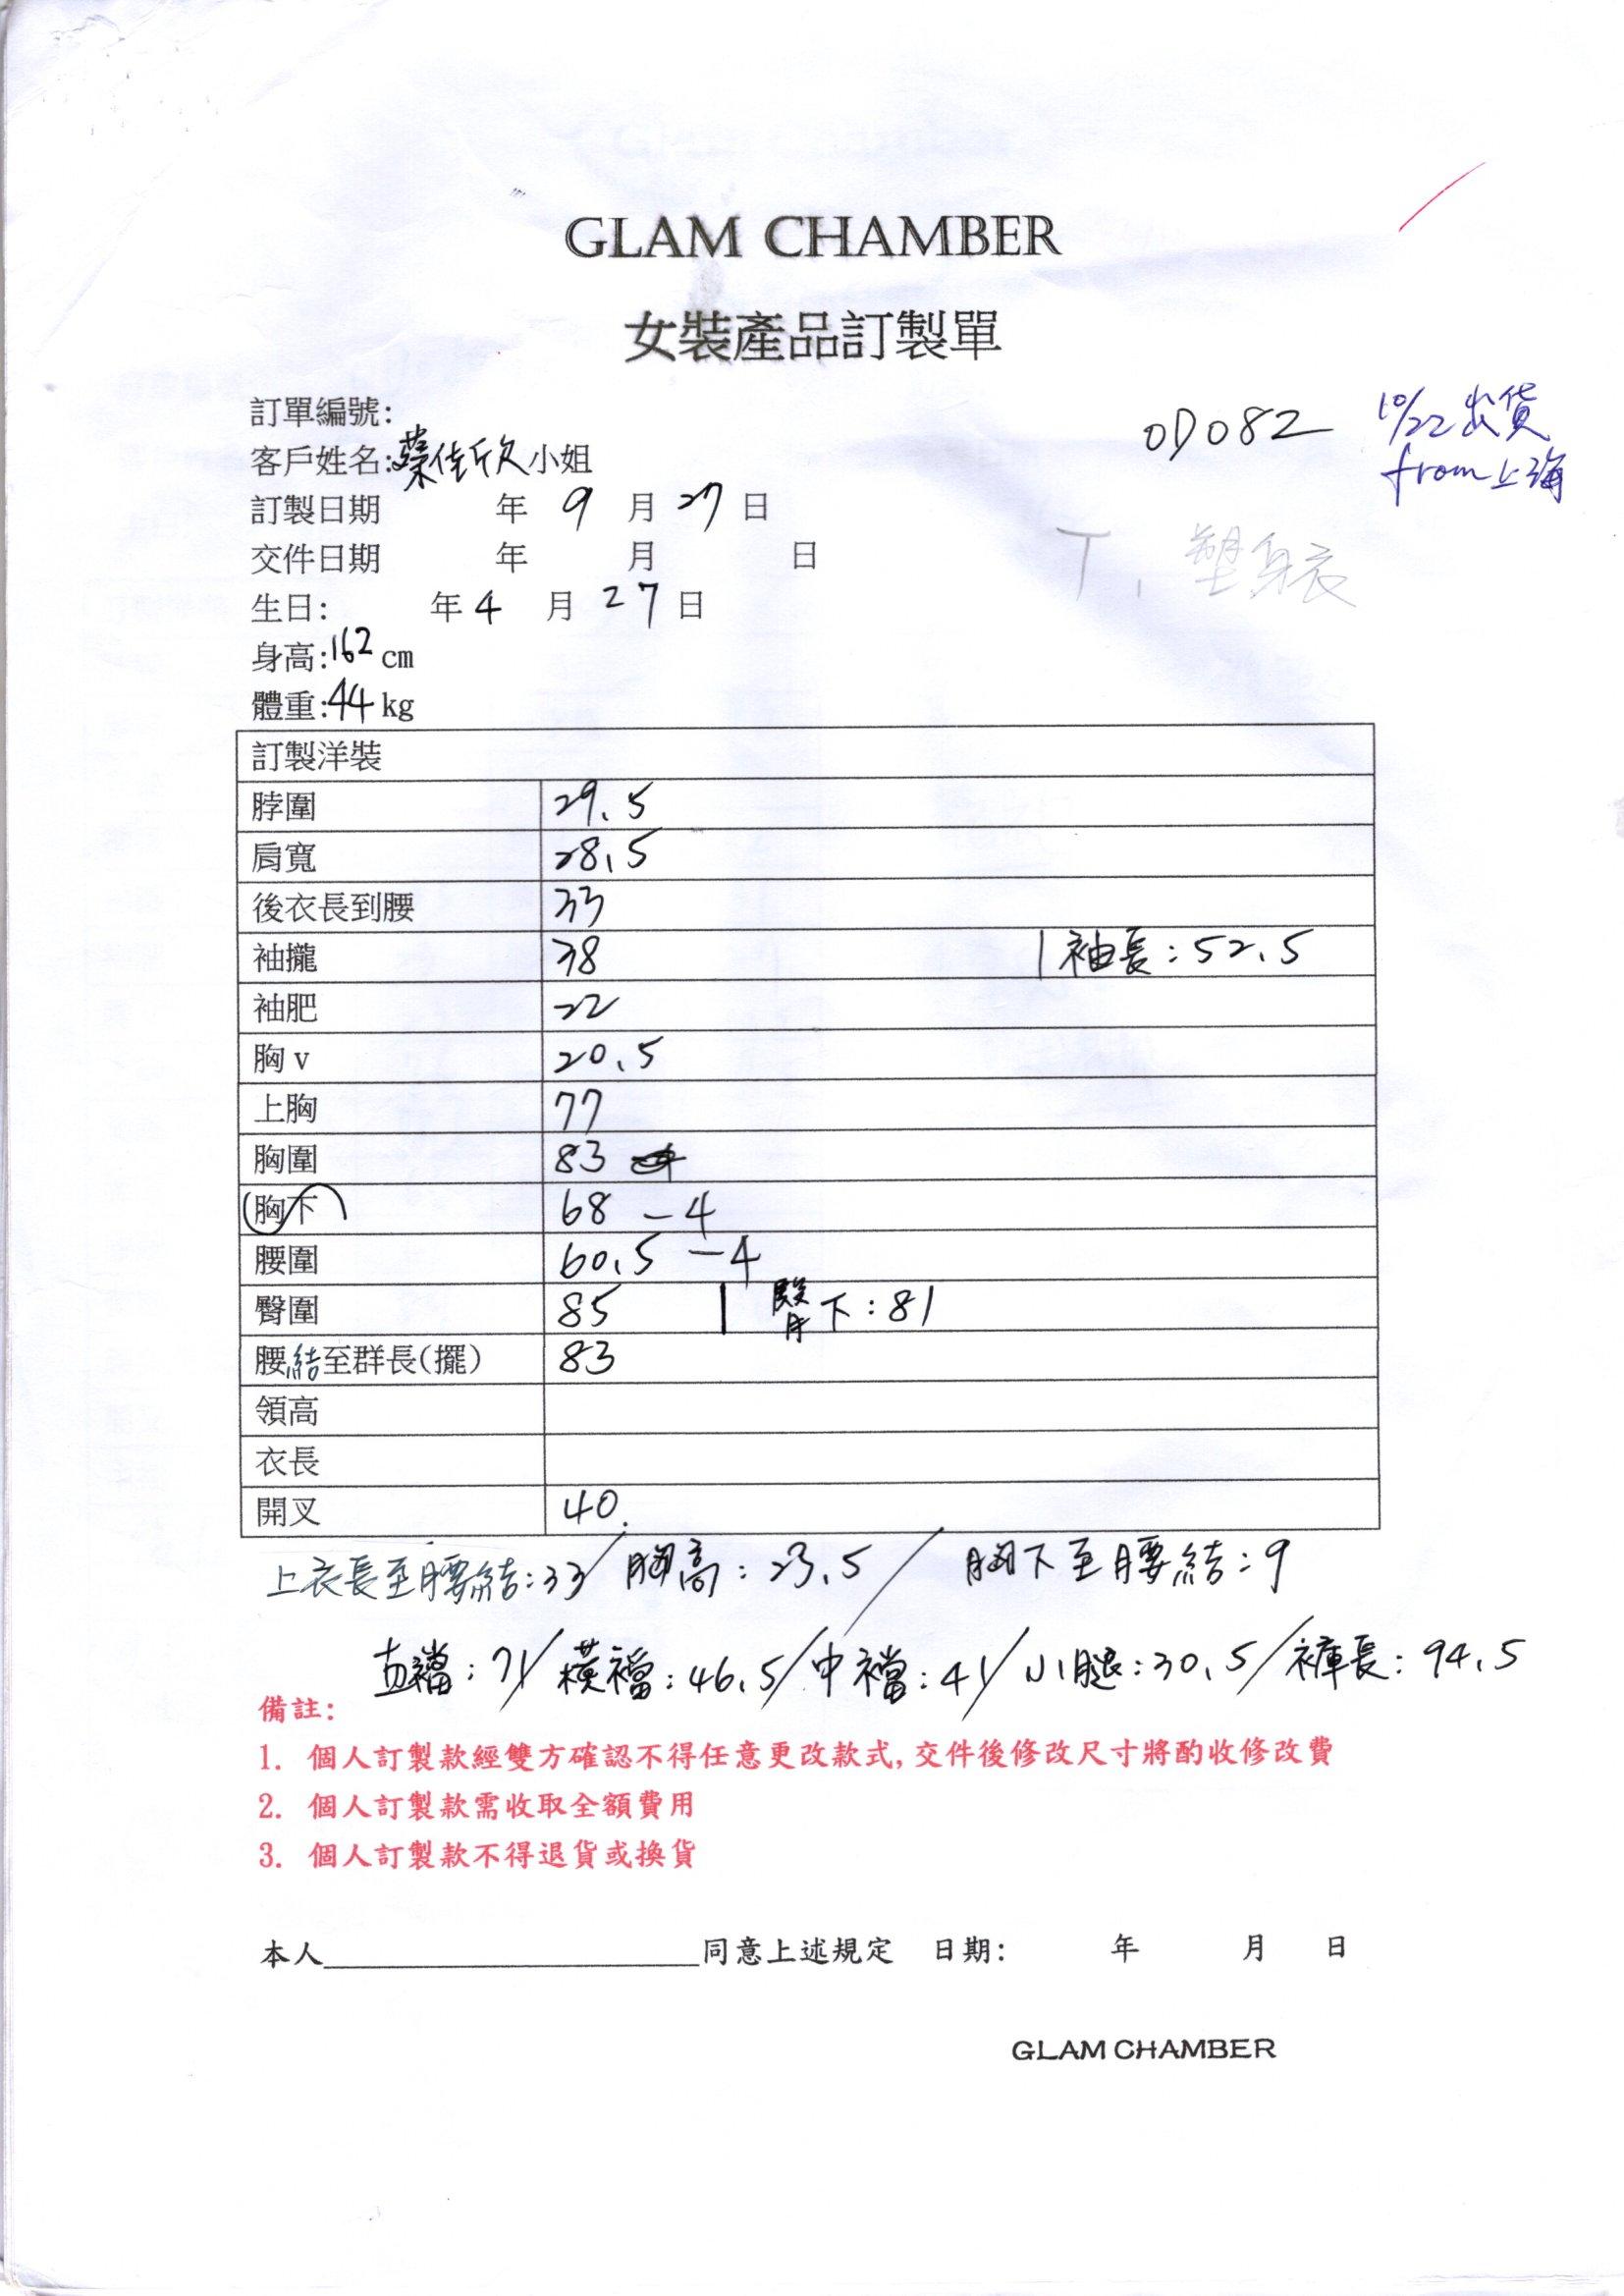 GLAM CHAMBER
女裝產品訂製單
訂單編號:
OD082 10/22出貨
from上海
客戶姓名:蔡佳欣小姐
訂製日期 年 9 月 27 日
交件日期 年 月 日
T, 塑身衣
生日: 年 4 月 27 日
身高:162 cm
體重:44 kg
訂製洋裝
脖圍 29.5
肩寬 28.5
後衣長到腰 33
袖攏 38 | 袖長:52.5
袖肥 22
胸v 20.5
上胸 77
胸圍 83
胸下 68 -4
腰圍 60.5 -4
臀圍 85 | 臀下:81
腰結至群長(擺) 83
領高
衣長
開叉 40.
上衣長至腰結:33/胸高:23.5/胸下至腰結:9
直襠:71/橫襠:46.5/中襠:41/小腿:30.5/褲長:94.5
備註:
1. 個人訂製款經雙方確認不得任意更改款式,交件後修改尺寸將酌收修改費
2. 個人訂製款需收取全額費用
3. 個人訂製款不得退貨或換貨
本人____________________同意上述規定 日期: 年 月 日
GLAM CHAMBER